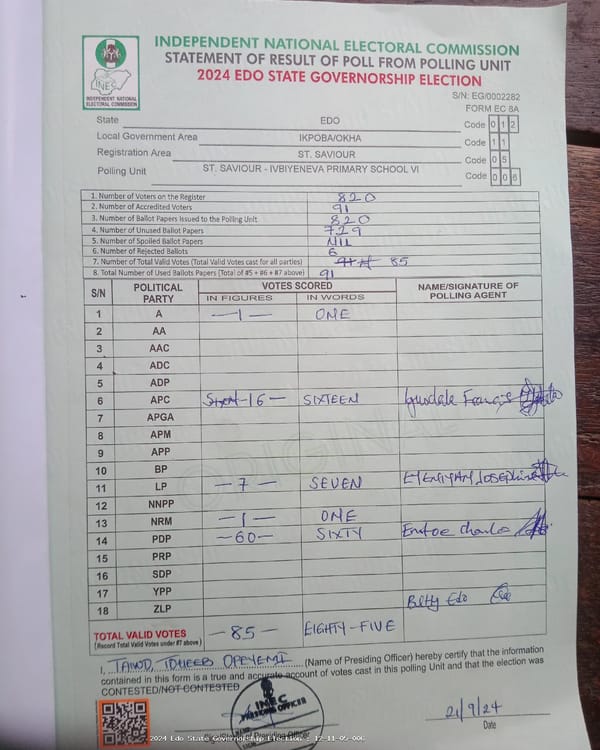 INDEPENDENT NATIONAL ELECTORAL COMMISSION
STATEMENT OF RESULT OF POLL FROM POLLING UNIT
2024 EDO STATE GOVERNORSHIP ELECTION
INEC
INDEPENDENT NATIONAL
ELECTORAL COMMISSION
S/N: EG/0002282
FORM EC 8A
State EDO Code 0 1 2
Local Government Area IKPOBA/OKHA Code 1 1
Registration Area ST. SAVIOUR Code 0 5
Polling Unit ST. SAVIOUR - IVBIYENEVA PRIMARY SCHOOL VI Code 0 0 6
1. Number of Voters on the Register 820
2. Number of Accredited Voters 91
3. Number of Ballot Papers Issued to the Polling Unit 820
4. Number of Unused Ballot Papers 729
5. Number of Spoiled Ballot Papers NIL
6. Number of Rejected Ballots 6
7. Number of Total Valid Votes (Total Valid Votes cast for all parties) 85
8. Total Number of Used Ballots Papers [Total of #5 + #6 + #7 above) 91
S/N POLITICAL PARTY VOTES SCORED NAME/SIGNATURE OF POLLING AGENT
IN FIGURES IN WORDS
1 A -1- ONE
2 AA
3 AAC
4 ADC
5 ADP
6 APC -16- SIXTEEN Francis
7 APGA
8 APM
9 APP
10 BP
11 LP -7- SEVEN JOSEPHINE
12 NNPP
13 NRM -1- ONE
14 PDP -60- SIXTY Charles
15 PRP
16 SDP
17 YPP
18 ZLP Betty Edo
TOTAL VALID VOTES -85- EIGHTY-FIVE
(Record Total Valid Votes under #7 above)
I, OPEYEMI (Name of Presiding Officer) hereby certify that the information
contained in this form is a true and accurate account of votes cast in this polling Unit and that the election was
CONTESTED/NOT CONTESTED
INEC
PRESIDING OFFICER
21/9/24
Date
2024 Edo State Governorship Election : 12-11-05-006